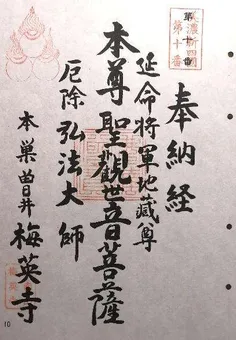 奉納経
美濃新四国
第十番
延命将軍地蔵尊
本尊聖観世音菩薩
厄除弘法大師
本巣曲日井
梅英寺
10